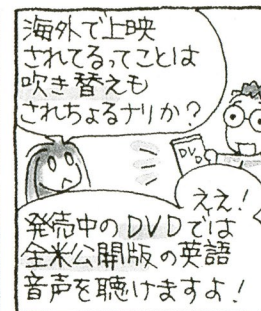 海外で上映
されてるってことは
吹き替えも
されちょるナリか?
DVD
ええ!
発売中のDVDでは
全米公開版の英語
音声を聴けますよ!